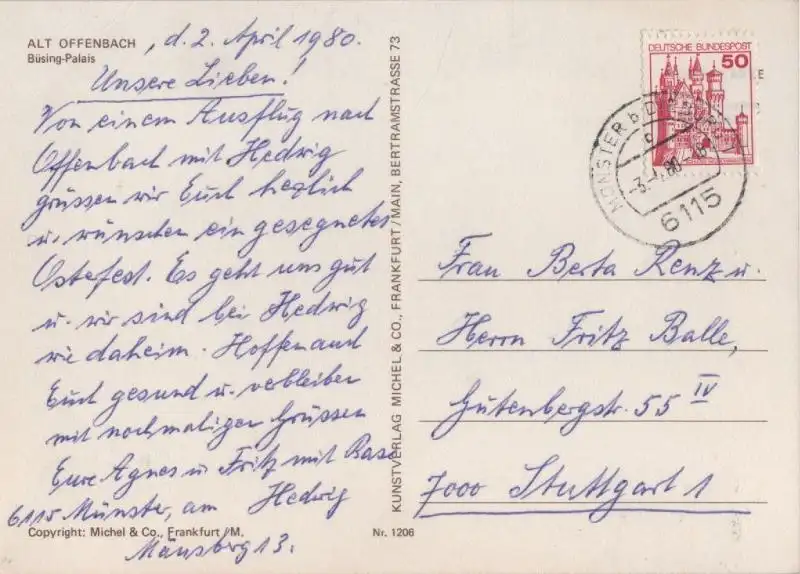 ALT OFFENBACH
Büsing-Palais
, d. 2. April 1980.
Unsere Lieben!
Von einem Ausflug nach
Offenbach mit Hedwig
grüssen wir Euch herzlich
u. wünschen ein gesegnetes
Osterfest. Es geht uns gut
u. wir sind bei Hedwig
wie daheim. Hoffen auch
Euch gesund u. verbleiben
mit nochmaligen Grüssen
Eure Agnes u Fritz mit Base
Hedwig
6115 Münster, am
Mäusberg 13.
Copyright: Michel & Co., Frankfurt/M.
Nr. 1206
KUNSTVERLAG MICHEL & CO., FRANKFURT/MAIN, BERTRAMSTRASSE 73
DEUTSCHE BUNDESPOST
50
MÜNSTER b DIEBURG
-3.-4.80
6115
Frau Berta Renz u.
Herrn Fritz Balle,
Gutenbergstr. 55 IV
7000 Stuttgart 1